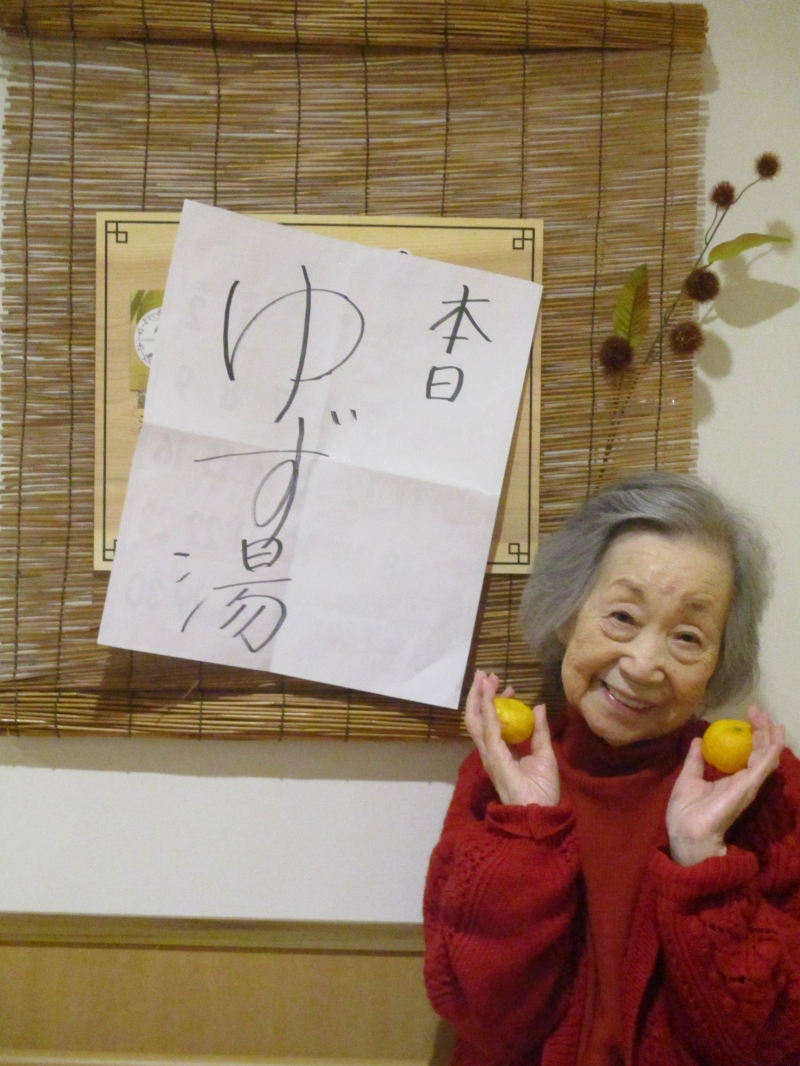 本日
ゆず湯